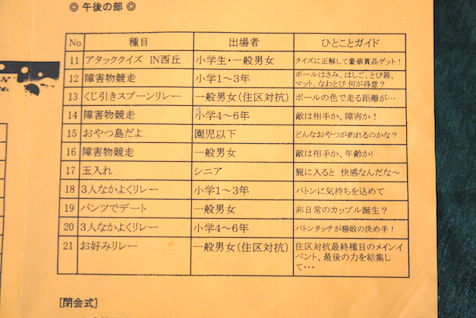 ◎ 午後の部 ◎
No 種目 出場者 ひとことガイド
11 アタッククイズ IN西丘 小学生・一般男女 クイズに正解して豪華賞品ゲット!
12 障害物競走 小学1~3年 ボールはさみ、はしご、とび箱、
マット、なわとび 何が得意?
13 くじ引きスプーンリレー 一般男女(住区対抗) ボールの色で走る距離が…
14 障害物競走 小学4~6年 敵は相手か、障害か!
15 おやつ島だよ 園児以下 どんなおやつが釣れるのかな?
16 障害物競走 一般男女 敵は相手か、年齢か!
17 玉入れ シニア 籠に入ると 快感なんだな~
18 3人なかよくリレー 小学1~3年 バトンに気持ちを込めて
19 パンツでデート 一般男女 非日常のカップル誕生?
20 3人なかよくリレー 小学4~6年 バトンタッチが勝敗の決め手!
21 お好みリレー 一般男女(住区対抗) 住区対抗最終種目のメインイ
ベント、最後の力を結集し
て・・・
[閉会式]